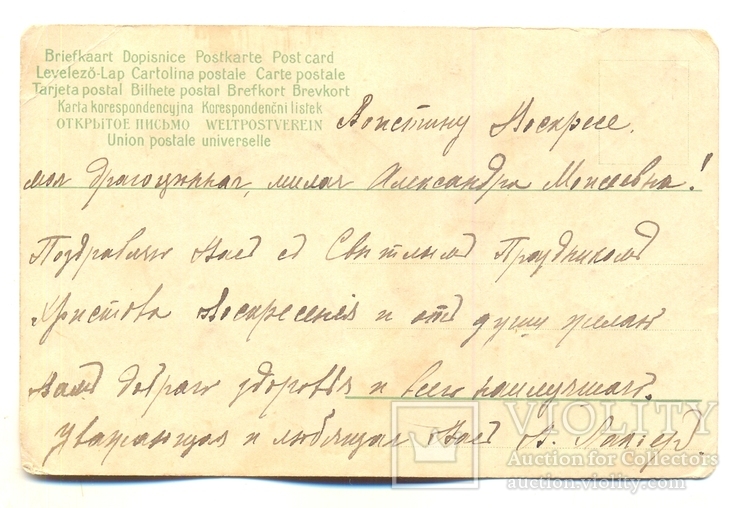 Briefkaart Dopisnice Postkarte Post card
Levelező-Lap Cartolina postale Carte postale
Tarjeta postal Bilhete postal Brefkort Brevkort
Karta korespondencyjna Korespondenčni listek
ОТКРЫТОЕ ПИСЬМО WELTPOSTVEREIN
Union postale universelle
Воистину Воскресе.
моя драгоцѣнная, милая Александра Моисеевна!
Поздравляю Васъ съ Свѣтлымъ Праздникомъ
Христова Воскресенія и отъ души желаю
Вамъ добраго здоровья и всего наилучшаго.
Уважающая и любящая Васъ
VIOLITY
Auction for Collectors
auction.violity.com